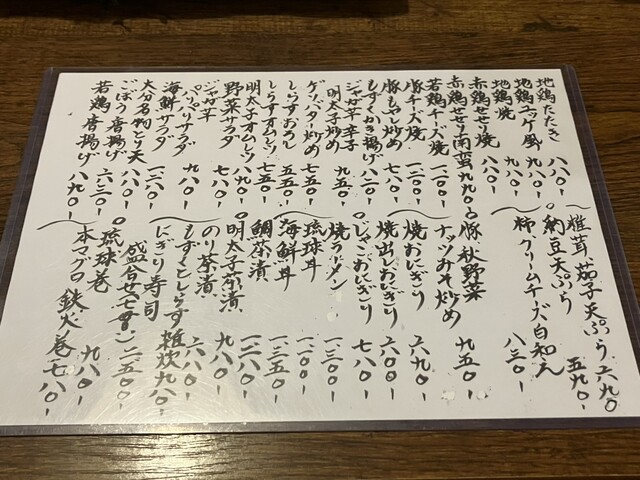 地鶏たたき 八八〇-
地鶏ユッケ風 九八〇-
地鶏焼 九八〇-
赤鶏せせり焼 八八〇-
赤鶏せせり南蛮 九九〇
若鶏チーズ焼 一.一〇〇-
豚チーズ焼 一.一〇〇-
豚もやし炒め 八八〇-
もずくかき揚げ 八二〇-
ジャガ辛子
明太子炒め 九五〇-
ゲソバター炒め 七八〇-
しらすおろし 五五〇-
しらすオムレツ 七五〇-
明太子オムレツ 八九〇
野菜サラダ 七八〇-
ジャガ芋
パリパリサラダ 九八〇-
海鮮サラダ 一.二八〇-
大分名物とり天 八八〇-
ごぼう唐揚げ 六三〇-
若鶏唐揚げ 八九〇-
椎茸茄子天ぷら 六九〇
納豆天ぷら 五九〇-
柿クリームチーズ白和え 八三〇-
豚秋野菜
ナッツみそ炒め 九五〇-
焼おにぎり 六九〇-
焼出しおにぎり
じゃこおにぎり 七八〇-
焼ラーメン 一.三〇〇-
琉球丼 一.一〇〇-
海鮮丼 一.三五〇-
鯛茶漬 一.二八〇-
明太子茶漬 九八〇-
のり茶漬 六八〇-
もずくとしらす雑炊 九八〇-
にぎり寿司
盛合せ(七貫)
琉球巻 九八〇-
本マグロ鉄火巻 七八〇-